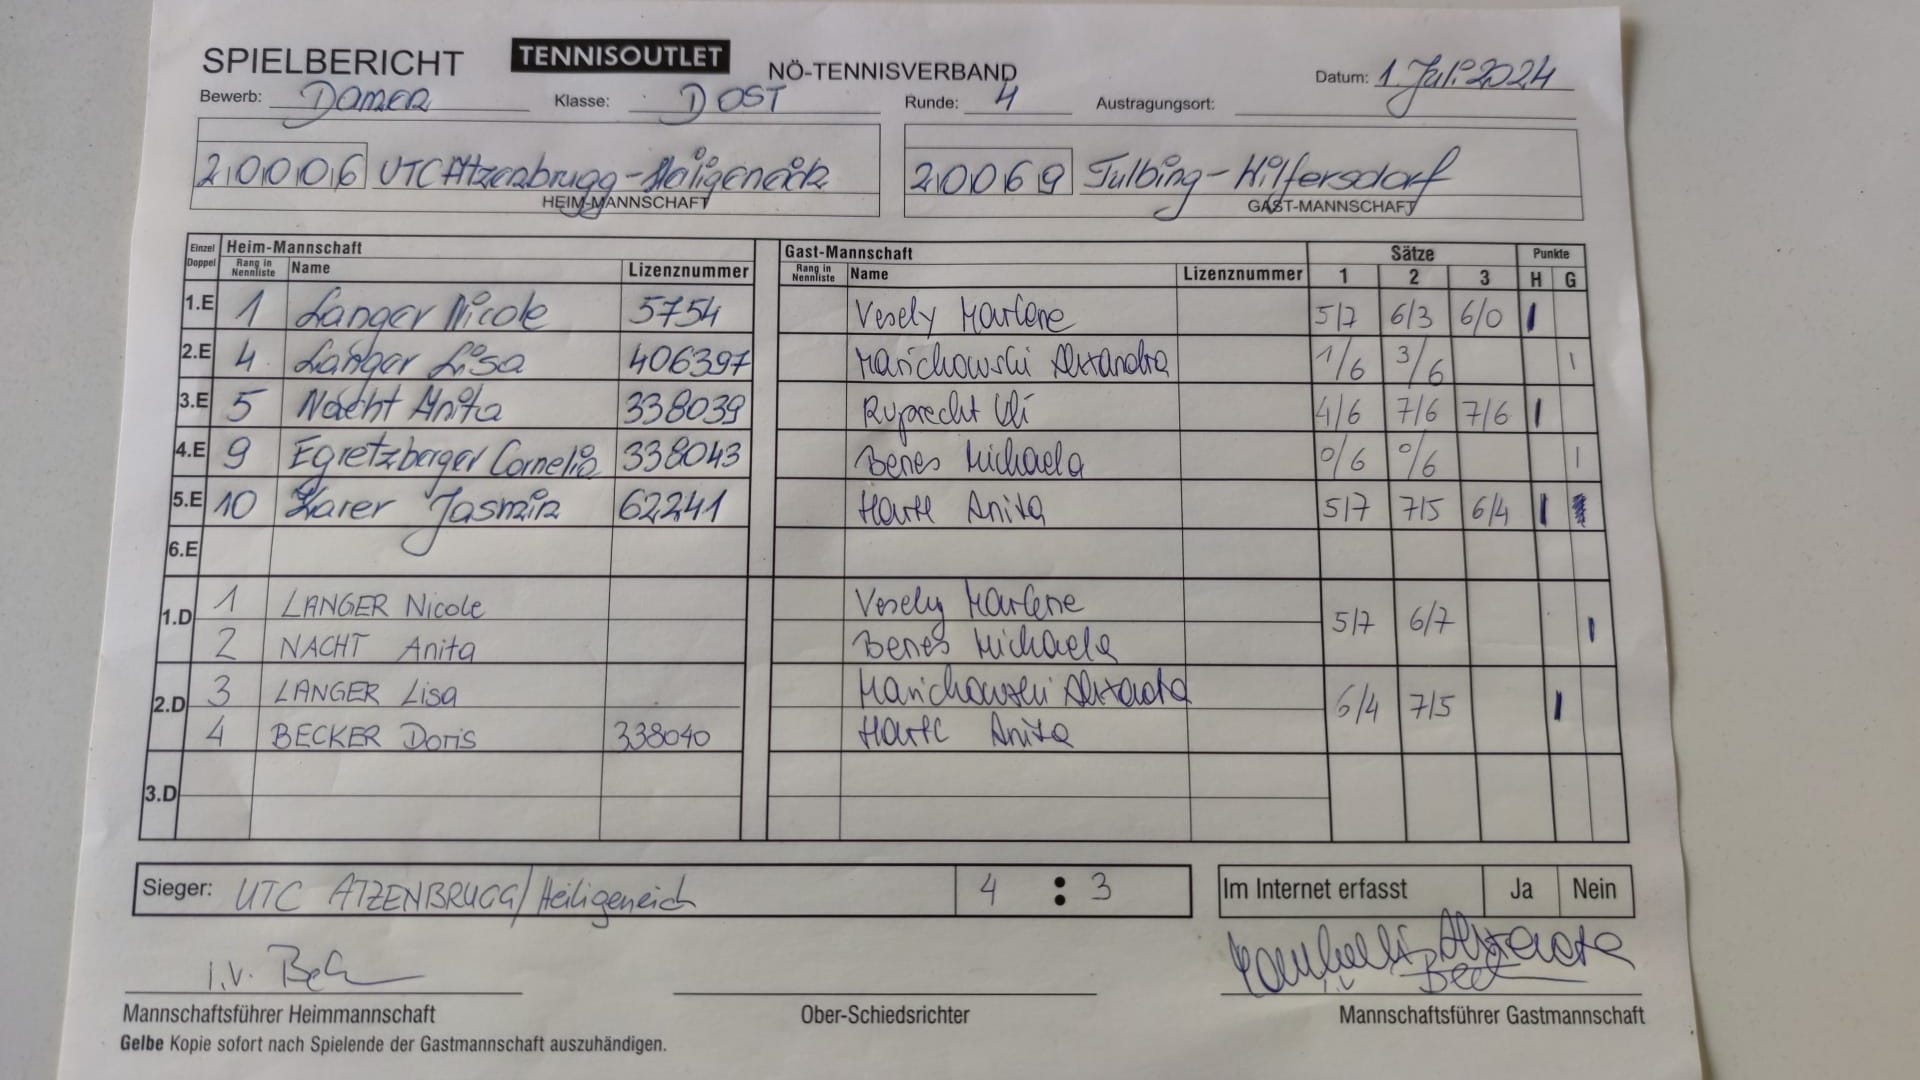 SPIELBERICHT TENNISOUTLET NÖ-TENNISVERBAND Datum: 1. Juli 2024
Bewerb: Damen Klasse: D OST Runde: 4 Austragungsort:
20006 UTC Atzenbrugg-Heiligeneich 20069 Tulbing-
HEIM-MANNSCHAFT GAST-MANNSCHAFT
Einzel Heim-Mannschaft Gast-Mannschaft Sätze Punkte
Doppel Rang in Nennliste Name Lizenznummer Rang in Nennliste Name Lizenznummer 1 2 3 H G
1.E 1 Langer Nicole 5754 Vesely Marlene 5/7 6/3 6/0 1
2.E 4 Langer Lisa 406397 1/6 3/6 1
3.E 5 Nacht Anita 338039 Ruprecht Uli 4/6 7/6 7/6 1
4.E 9 Egretzberger Cornelia 338043 Benes Michaela 0/6 0/6 1
5.E 10 Jasmin 62241 Hartl Anita 5/7 7/5 6/4 1
6.E
1.D 1 LANGER Nicole Vesely Marlene 5/7 6/7 1
2 NACHT Anita Benes Michaela
2.D 3 LANGER Lisa 6/4 7/5 1
4 BECKER Doris 338040 Hartl Anita
3.D
Sieger: UTC ATZENBRUGG/Heiligeneich 4 : 3 Im Internet erfasst Ja Nein
i.V.
Mannschaftsführer Heimmannschaft Ober-Schiedsrichter Mannschaftsführer Gastmannschaft
Gelbe Kopie sofort nach Spielende der Gastmannschaft auszuhändigen.